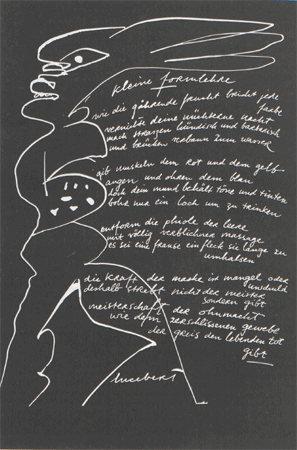 kleine formlehre
wie die gährende frucht bricht jede
farbe
vernichte deine nüchterne nacht
nach strengem bündisch und barbarisch
und brücken
gib muskeln dem rot und dem gelb
augen und ohren dem blau
doch dem mund behälts töne und tinten
bohr nun ein loch um zu trinken
entform die phiole der leere
mit völlig verblichner massage
es sei eine franse ein fleck sie lange zu
umhalsen
die kraft der maske ist mangel oder
unschuld
deshalb strebt nicht der meister
sondern gibt
meisterschaft der ohnmacht
wie dem zerschlissenen gewebe
der greis den lebenden tot
gibt
lucebert